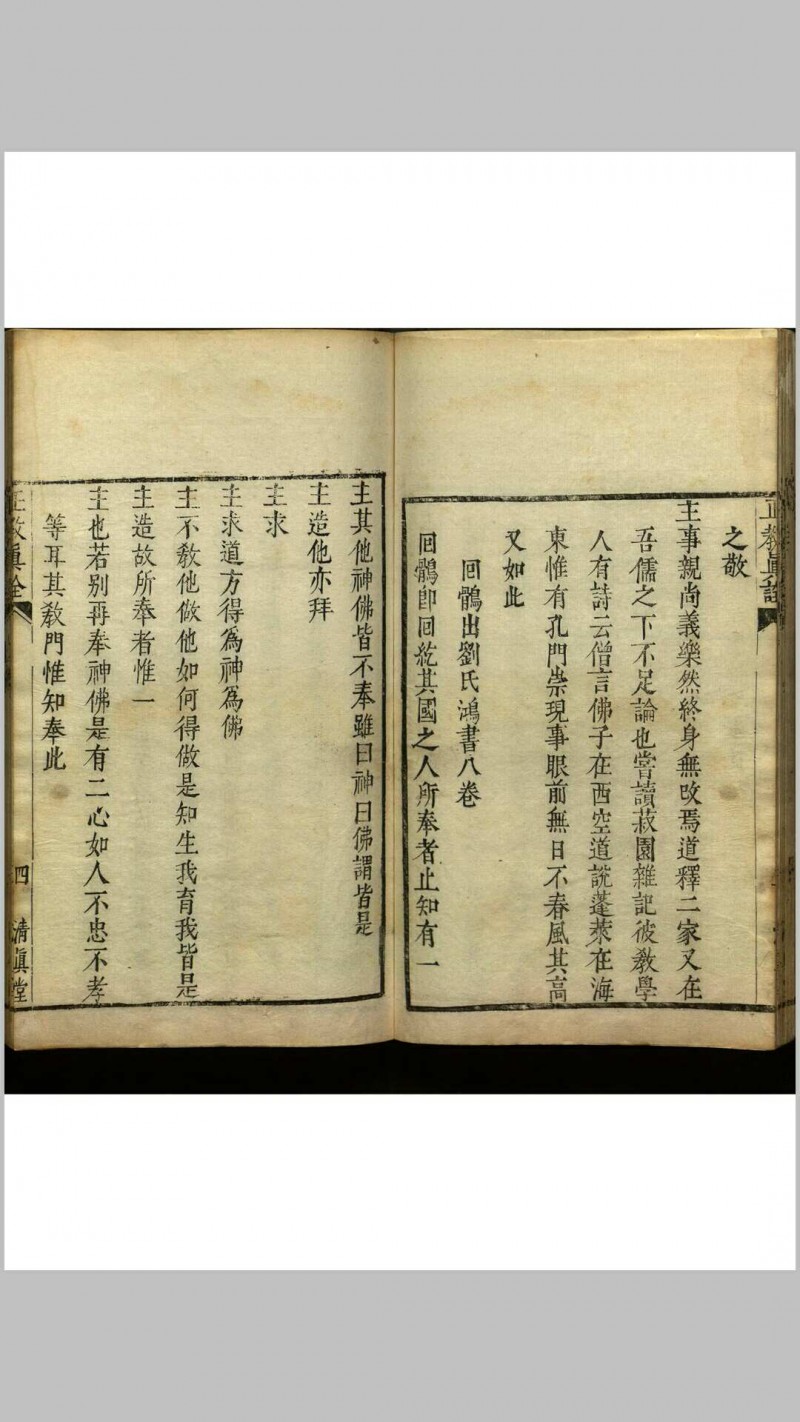 正教眞詮
之敬
主事親尚義樂然終身無改焉道釋二家又在
吾儒之下不足論也嘗讀菽園雜記彼教學
人有詩云僧言佛子在西空道說蓬萊在海
東惟有孔門崇現事眼前無日不春風其高
又如此
回鶻出劉氏鴻書八卷
回鶻卽回紇其國之人所奉者止知有一
主其他神佛皆不奉雖曰神曰佛謂皆是
主造他亦拜
主求
主求道方得爲神爲佛
主不教他做他如何得做是知生我育我皆是
主造故所奉者惟一
主也若別再奉神佛是有二心如人不忠不孝
等耳其教門惟知奉此
正教眞詮 四 清眞堂